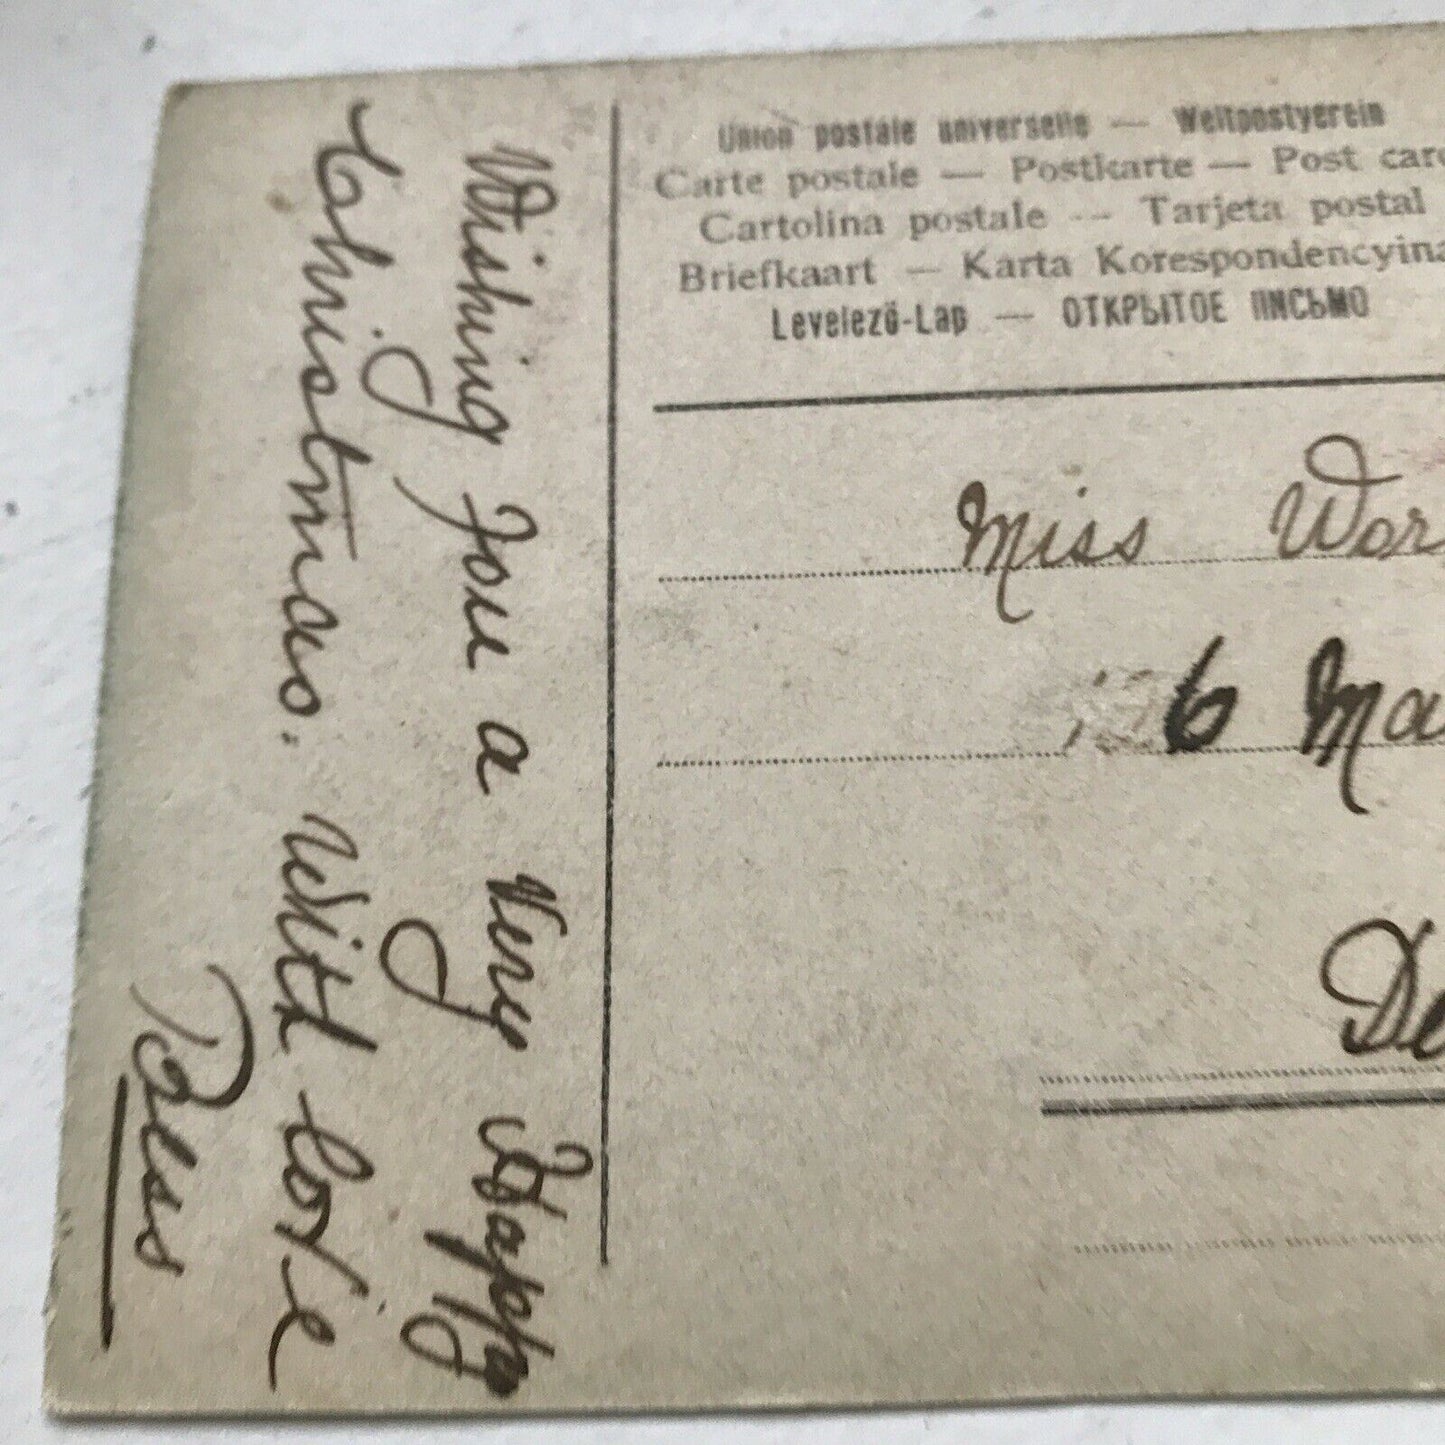 Union postale universelle — Weltpostverein
Carte postale — Postkarte — Post car
Cartolina postale -- Tarjeta postal
Briefkaart — Karta Korespondencyina
Levelező-Lap — ОТКРЫТОЕ ПИСЬМО
Miss Wor
6 Ma
De
Wishing You a Very Happy
Christmas. With love
Bess